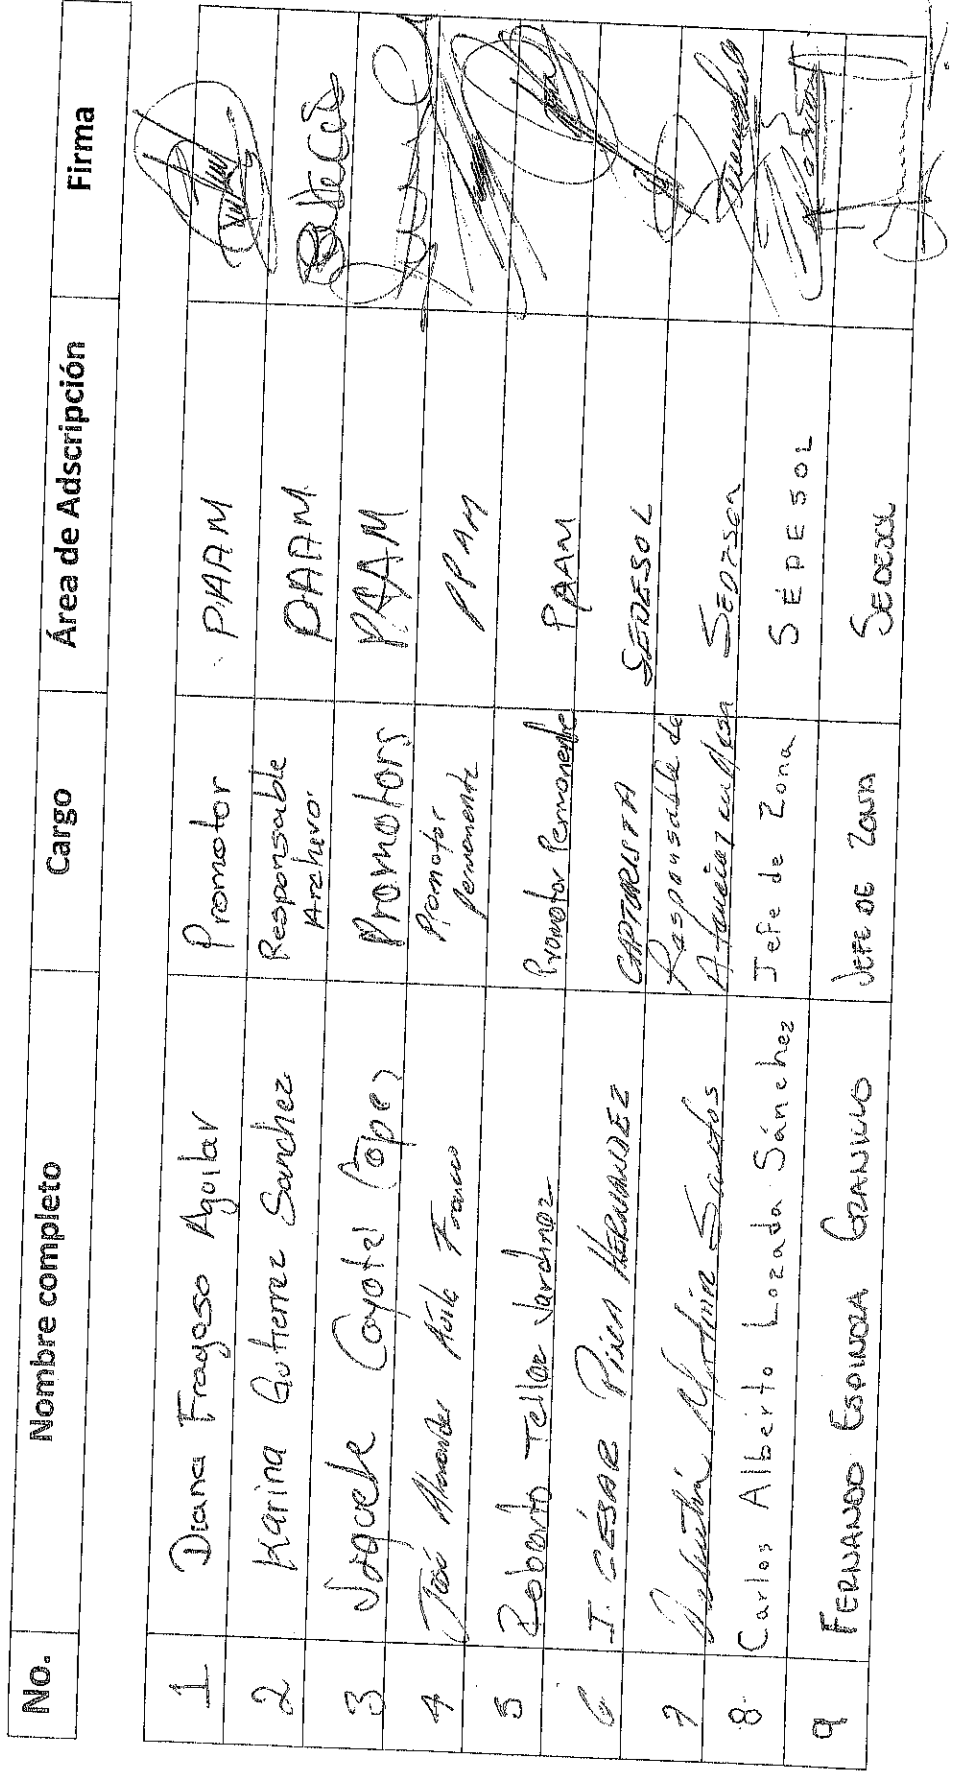 No. Nombre completo Cargo Área de Adscripción Firma
1 Diana Fragoso Aguilar Promotor PAAM
2 Karina Gutierrez Sanchez Responsable Archivo PAAM
3 Coyotzi López PAAM
4 José Ávila Franco Promotor Permanente PPAM
5 Roberto Tellez Promotor Permanente PAAM
6 I. CÉSAR HERNANDEZ CAPTURISTA SEDESOL
7 Martínez Santos Responsable de
8 Carlos Alberto Lozada Sánchez Jefe de Zona SEDESOL
9 FERNANDO ESPINOZA GRANILLO JEFE DE ZONA SEDESOL